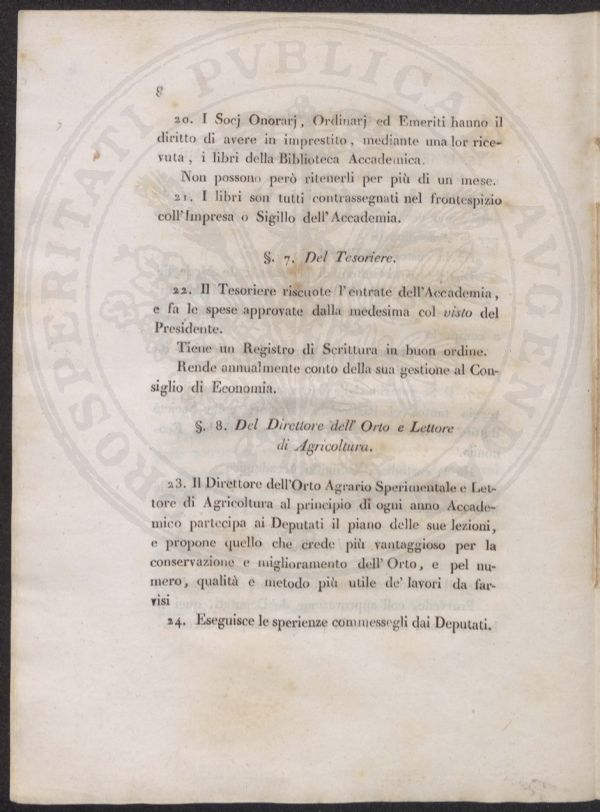 8
20. I Socj Onorarj, Ordinarj ed Emeriti hanno il
diritto di avere in imprestito, mediante una lor rice-
vuta, i libri della Biblioteca Accademica.
Non possono però ritenerli per più di un mese.
21. I libri son tutti contrassegnati nel frontespizio
coll'Impresa o Sigillo dell'Accademia.
§. 7. Del Tesoriere.
22. Il Tesoriere riscuote l'entrate dell'Accademia,
e fa le spese approvate dalla medesima col visto del
Presidente.
Tiene un Registro di Scrittura in buon ordine.
Rende annualmente conto della sua gestione al Con-
siglio di Economia.
§. 8. Del Direttore dell' Orto e Lettore
di Agricoltura.
23. Il Direttore dell'Orto Agrario Sperimentale e Let-
tore di Agricoltura al principio di ogni anno Accade-
mico partecipa ai Deputati il piano delle sue lezioni,
e propone quello che crede più vantaggioso per la
conservazione e miglioramento dell'Orto, e pel nu-
mero, qualità e metodo più utile de' lavori da far-
visi
24. Eseguisce le sperienze commessegli dai Deputati.
PROSPERITATI PVBLICAE AVGENDAE